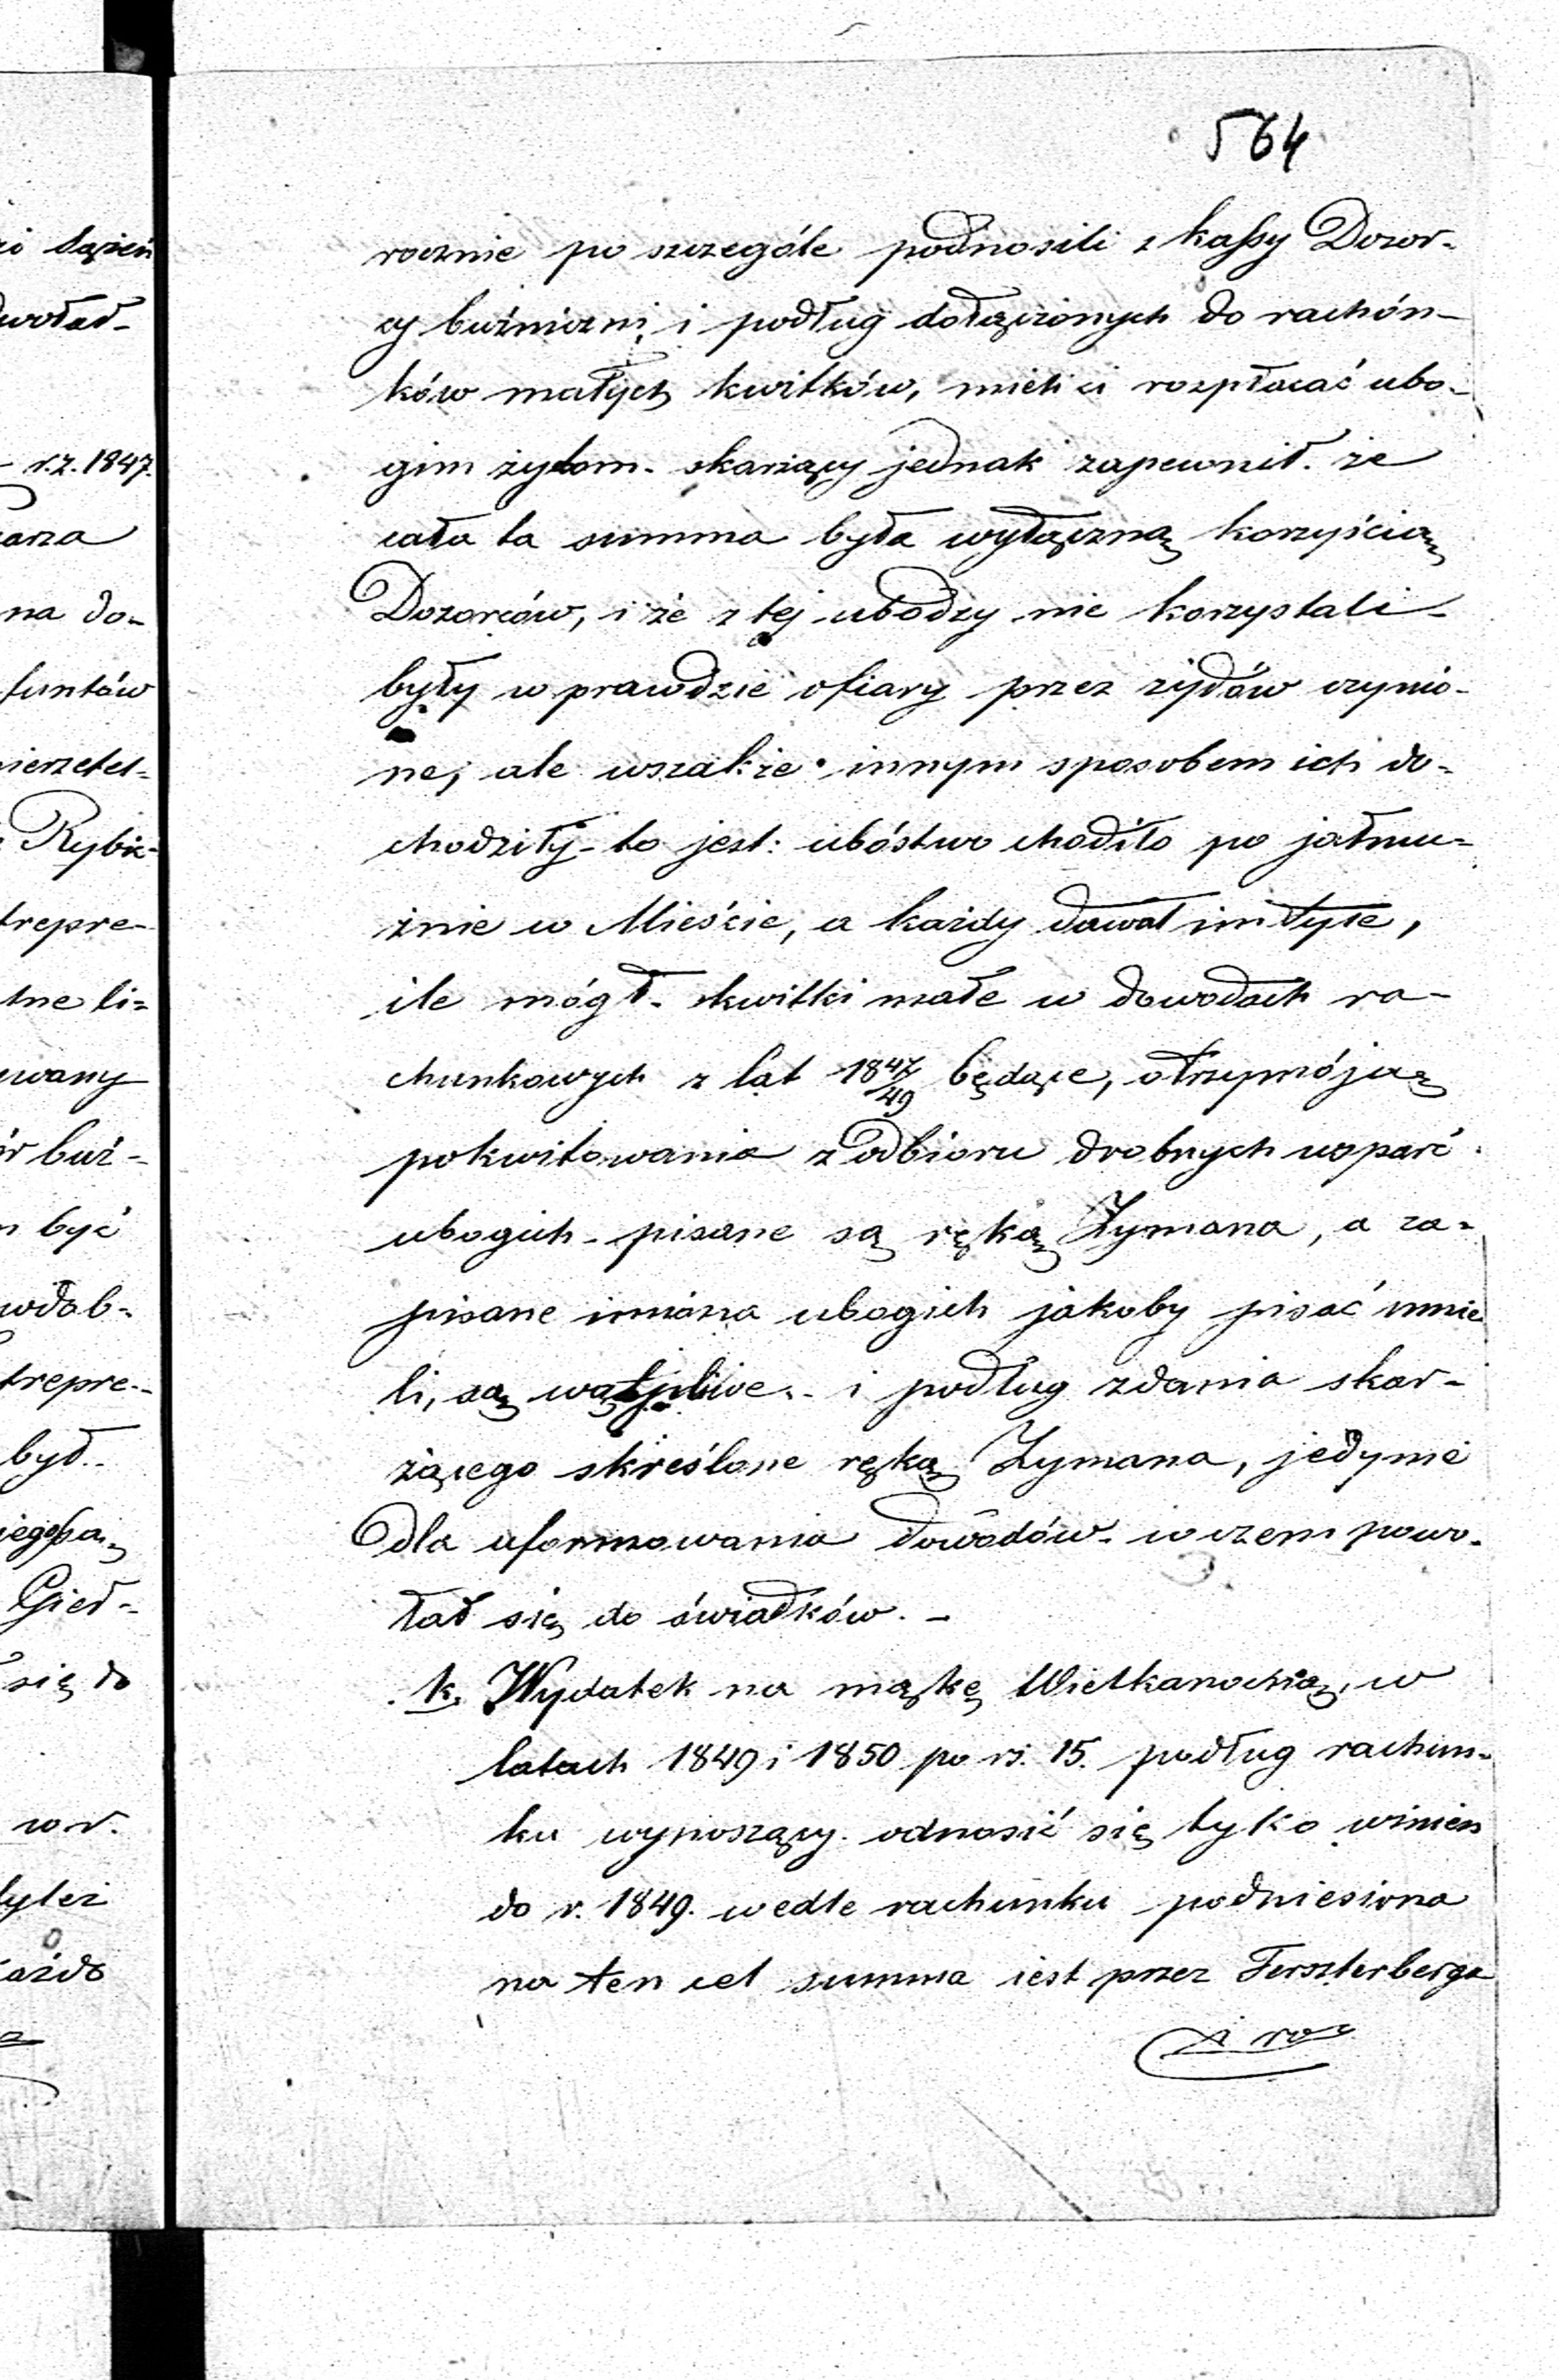 564
rocznie po szczególe podnosili z kassy Dozor-
cy bużniczni, i podług dołączonych do rachón-
ków małych kwitków, mieli ci rozpłacać ubo-
gim żydom. skarżący jednak zapewnił. że
cała ta summa była wyłączną korzyścią
Dozorców, i że z tej ubodzy nie korzystali -
były w prawdzie ofiary przez żydów czynio-
ne, ale wszakże innym sposobem ich do-
chodziły - to jest: ubóstwo chodziło po jałmu-
żnie w Mieście, a każdy dawał im tyle,
ile mógł. kwitki małe w dowodach ra-
chunkowych z lat 1847/49 będące, otrzymóją
pokwitowania z odbioru drobnych wsparć
ubogich - pisane są ręką Zymana, a za-
pisane imiona ubogich jakoby pisać umie
li, są wątpliwe - i podług zdania skar-
żącego skréślone ręką Zymana, jedynie
dla uformowania dowodów - w czem powo-
łał się do świadków. -
k. Wydatek na mąkę Wielkanocną, w
latach 1849 i 1850 po rs. 15. podług rachun-
ku wynoszący. odnosić się tylko winien
do r. 1849. wedle rachunku podniesiona
na ten cel summa jest przez Ferszterberga
żarza
na do-
funtów
trepre-
r.z. 1847.
buż-
być
trepre-
był.
się do
w r.